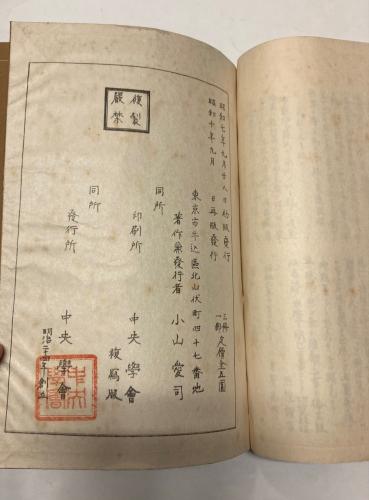 複製
嚴禁
昭和七年九月廿八日初版發行
昭和十年九月　日再版發行
三冊
一部 定價金五圓
東京市牛込區北山伏町四十七番地
著作兼發行者　小山愛司
同所
印刷所　中央學會
複寫版
同所
發行所　中央學會
明治二十四年創立